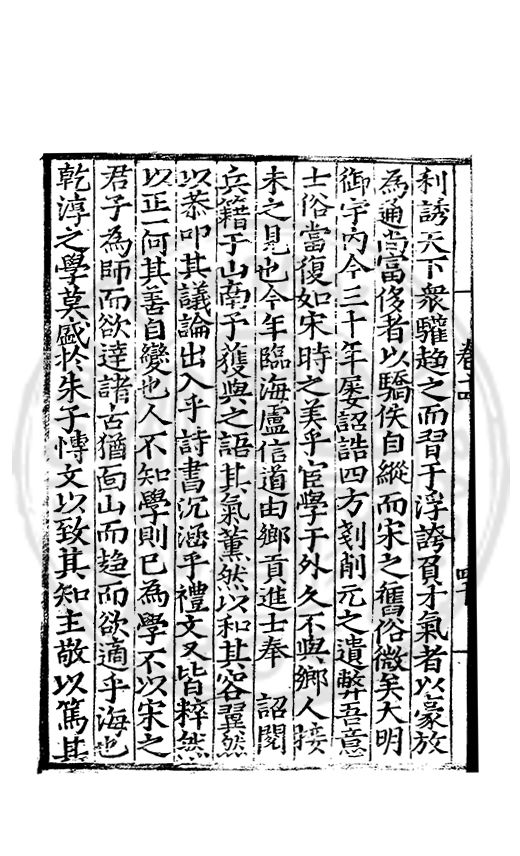 利誘天下衆驩趨之而習于浮誇負才氣者以豪放
為通尚富侈者以驕佚自縱而宋之舊俗微矣大明
御宇內今三十年屡詔誥四方剗削元之遺弊吾意
士俗當復如宋時之美乎宦學于外久不與鄉人接
未之見也今年臨海盧信道由鄉貢進士奉 詔閱
兵籍于山南予獲與之語其氣薰然以和其容翼然
以恭叩其議論出入乎詩書沉涵乎禮文又皆粹然
以正一何其善自變也人不知學則已為學不以宋之
君子為師而欲達諸古猶面山而趨而欲適乎海也
乾淳之學莫盛於朱子愽文以致其知主敬以篤其